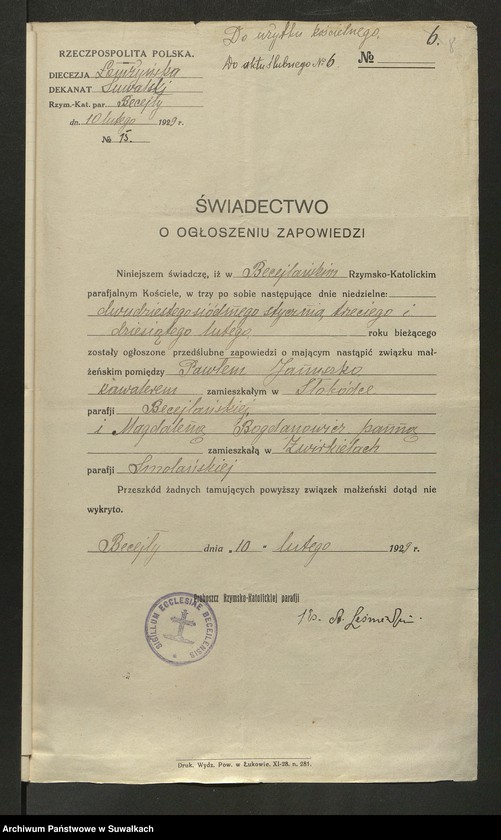 Do użytku kościelnego.
6.
8
RZECZPOSPOLITA POLSKA.
Do aktu ślubnego № 6
№
DIECEZJA Łomżyńska
DEKANAT Suwalski
Rzym.-Kat. par. Becejły
dn. 10 lutego 1929 r.
№ 15.
ŚWIADECTWO
O OGŁOSZENIU ZAPOWIEDZI
Niniejszem świadczę, iż w Becejlańskim Rzymsko-Katolickim
parafjalnym Kościele, w trzy po sobie następujące dnie niedzielne:
dwudziestego siódmego stycznia, trzeciego i
dziesiątego lutego roku bieżącego
zostały ogłoszone przedślubne zapowiedzi o mającym nastąpić związku mał-
żeńskim pomiędzy Pawłem Januszko
kawalerem zamieszkałym w
parafji Becejlańskiej,
i Magdaleną Bogdanowicz panną
zamieszkałą w Żwirkielach
parafji Smolańskiej
Przeszkód żadnych tamujących powyższy związek małżeński dotąd nie
wykryto.
Becejły dnia „10 „ lutego 1929 r.
Proboszcz Rzymsko-Katolickiej parafji
SIGILLUM ECCLESIAE BECEJLENSIS
Druk. Wydz. Pow. w Łukowie. XI-28. n. 281.
Archiwum Państwowe w Suwałkach